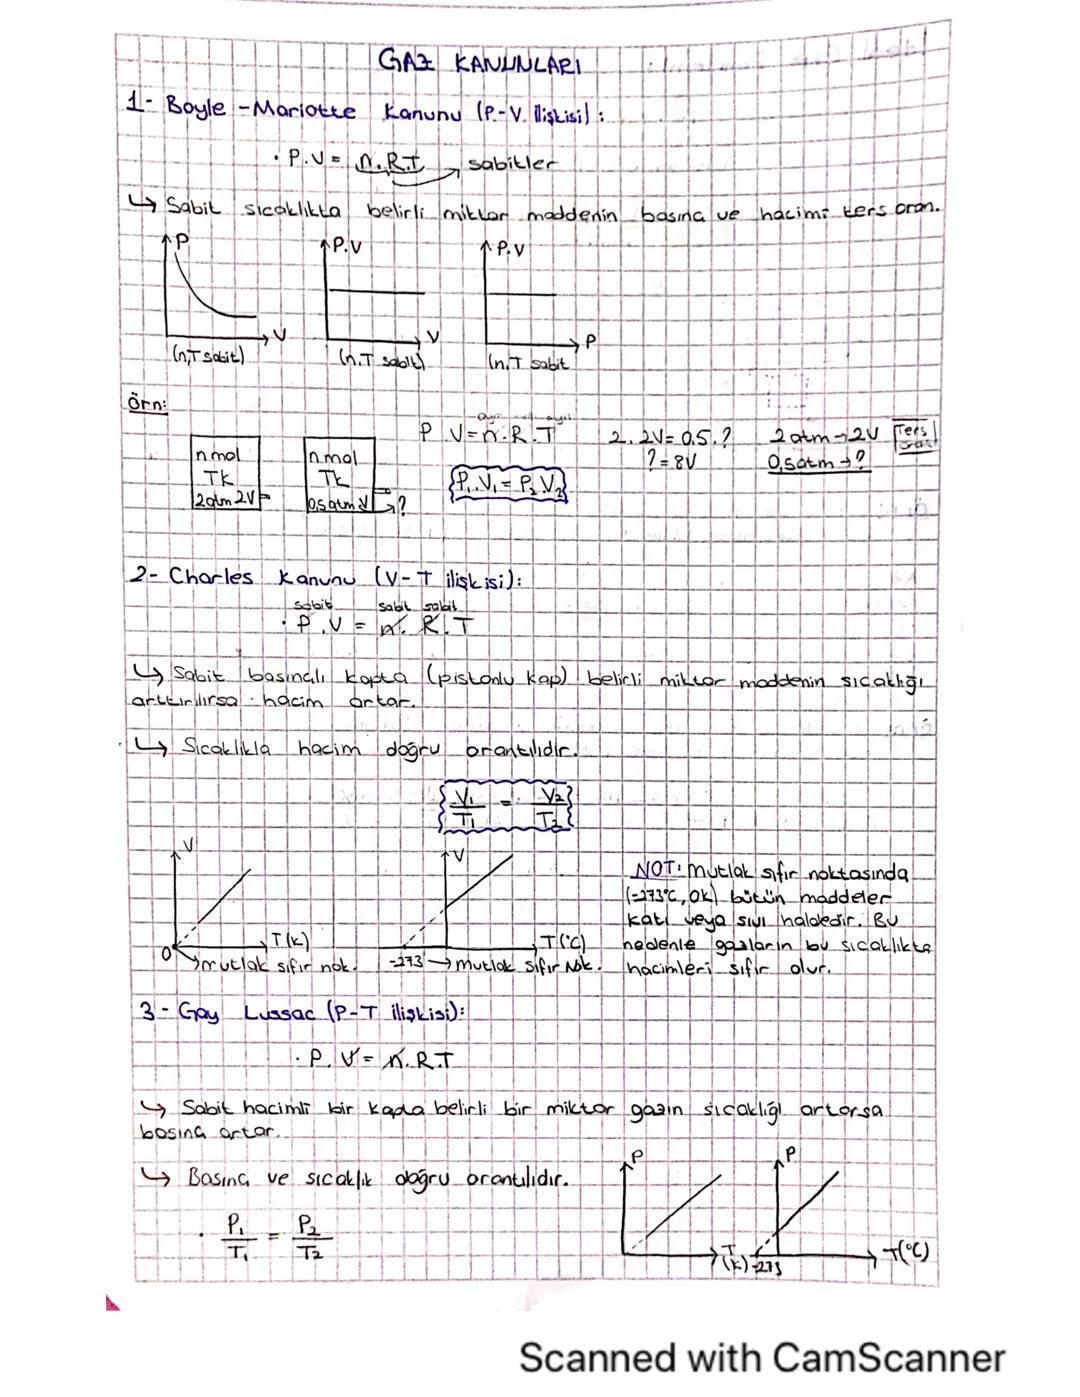 GAZ KANUNLARI
1- Boyle - Mariotte Kanunu (P-V İlişkisi):
· P.V = n.R.T → sabitler
↳ Sabit sıcaklıkta belirli miktar maddenin basınç ve hacimi ters oran.
P P.V P.V
V V P
(n,T sabit) (n.T sabit) (n.T sabit
Örn:
n mol
TK
2atm 2V
n mol
TK
0,5 atm V ?
P V = n.R.T
P₁.V₁ = P₂.V₂
2.2V = 0,5.?
? = 8V
2 atm → 2V
0,5atm → ?
Ters
2- Charles Kanunu (V-T ilişkisi):
sabit sabit sabit
· P.V = n.R.T
↳ Sabit basınçlı kapta (pistonlu kap) belirli miktar maddenin sıcaklığı
arttırılırsa hacim artar.
↳ Sıcaklıkla hacim doğru orantılıdır.
V₁/T₁ = V₂/T₂
V V
0 T(K) -273 T(°C)
→ mutlak sıfır nok. → mutlak sıfır Nok.
NOT: Mutlak sıfır noktasında
(-273°C, 0K) bütün maddeler
katı veya sıvı haldedir. Bu
nedenle gazların bu sıcaklıkta
hacimleri sıfır olur.
3- Gay Lussac (P-T ilişkisi):
· P.V = n.R.T
↳ Sabit hacimli bir kapta belirli bir miktar gazın sıcaklığı artarsa
basınç artar.
↳ Basınç ve sıcaklık doğru orantılıdır.
· P₁/T₁ = P₂/T₂
P P
T (K) -273 T(°C)
Scanned with CamScanner